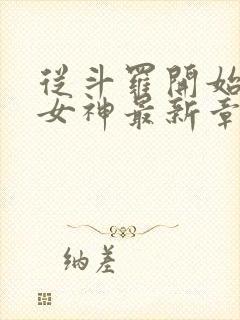 從斗羅開始
女神最新章
纳差